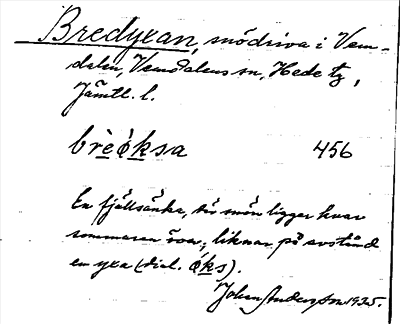 Bredyxan, snödriva i Vem-
dalen, Vemdalens sn, Hede tg,
Jämtl. l.
brèo̊ksa 456
En fjällsänka, där snön ligger kvar
sommaren över, liknar på avstånd
en yxa (dial. o̊ks).
Johan Anderson 1935.